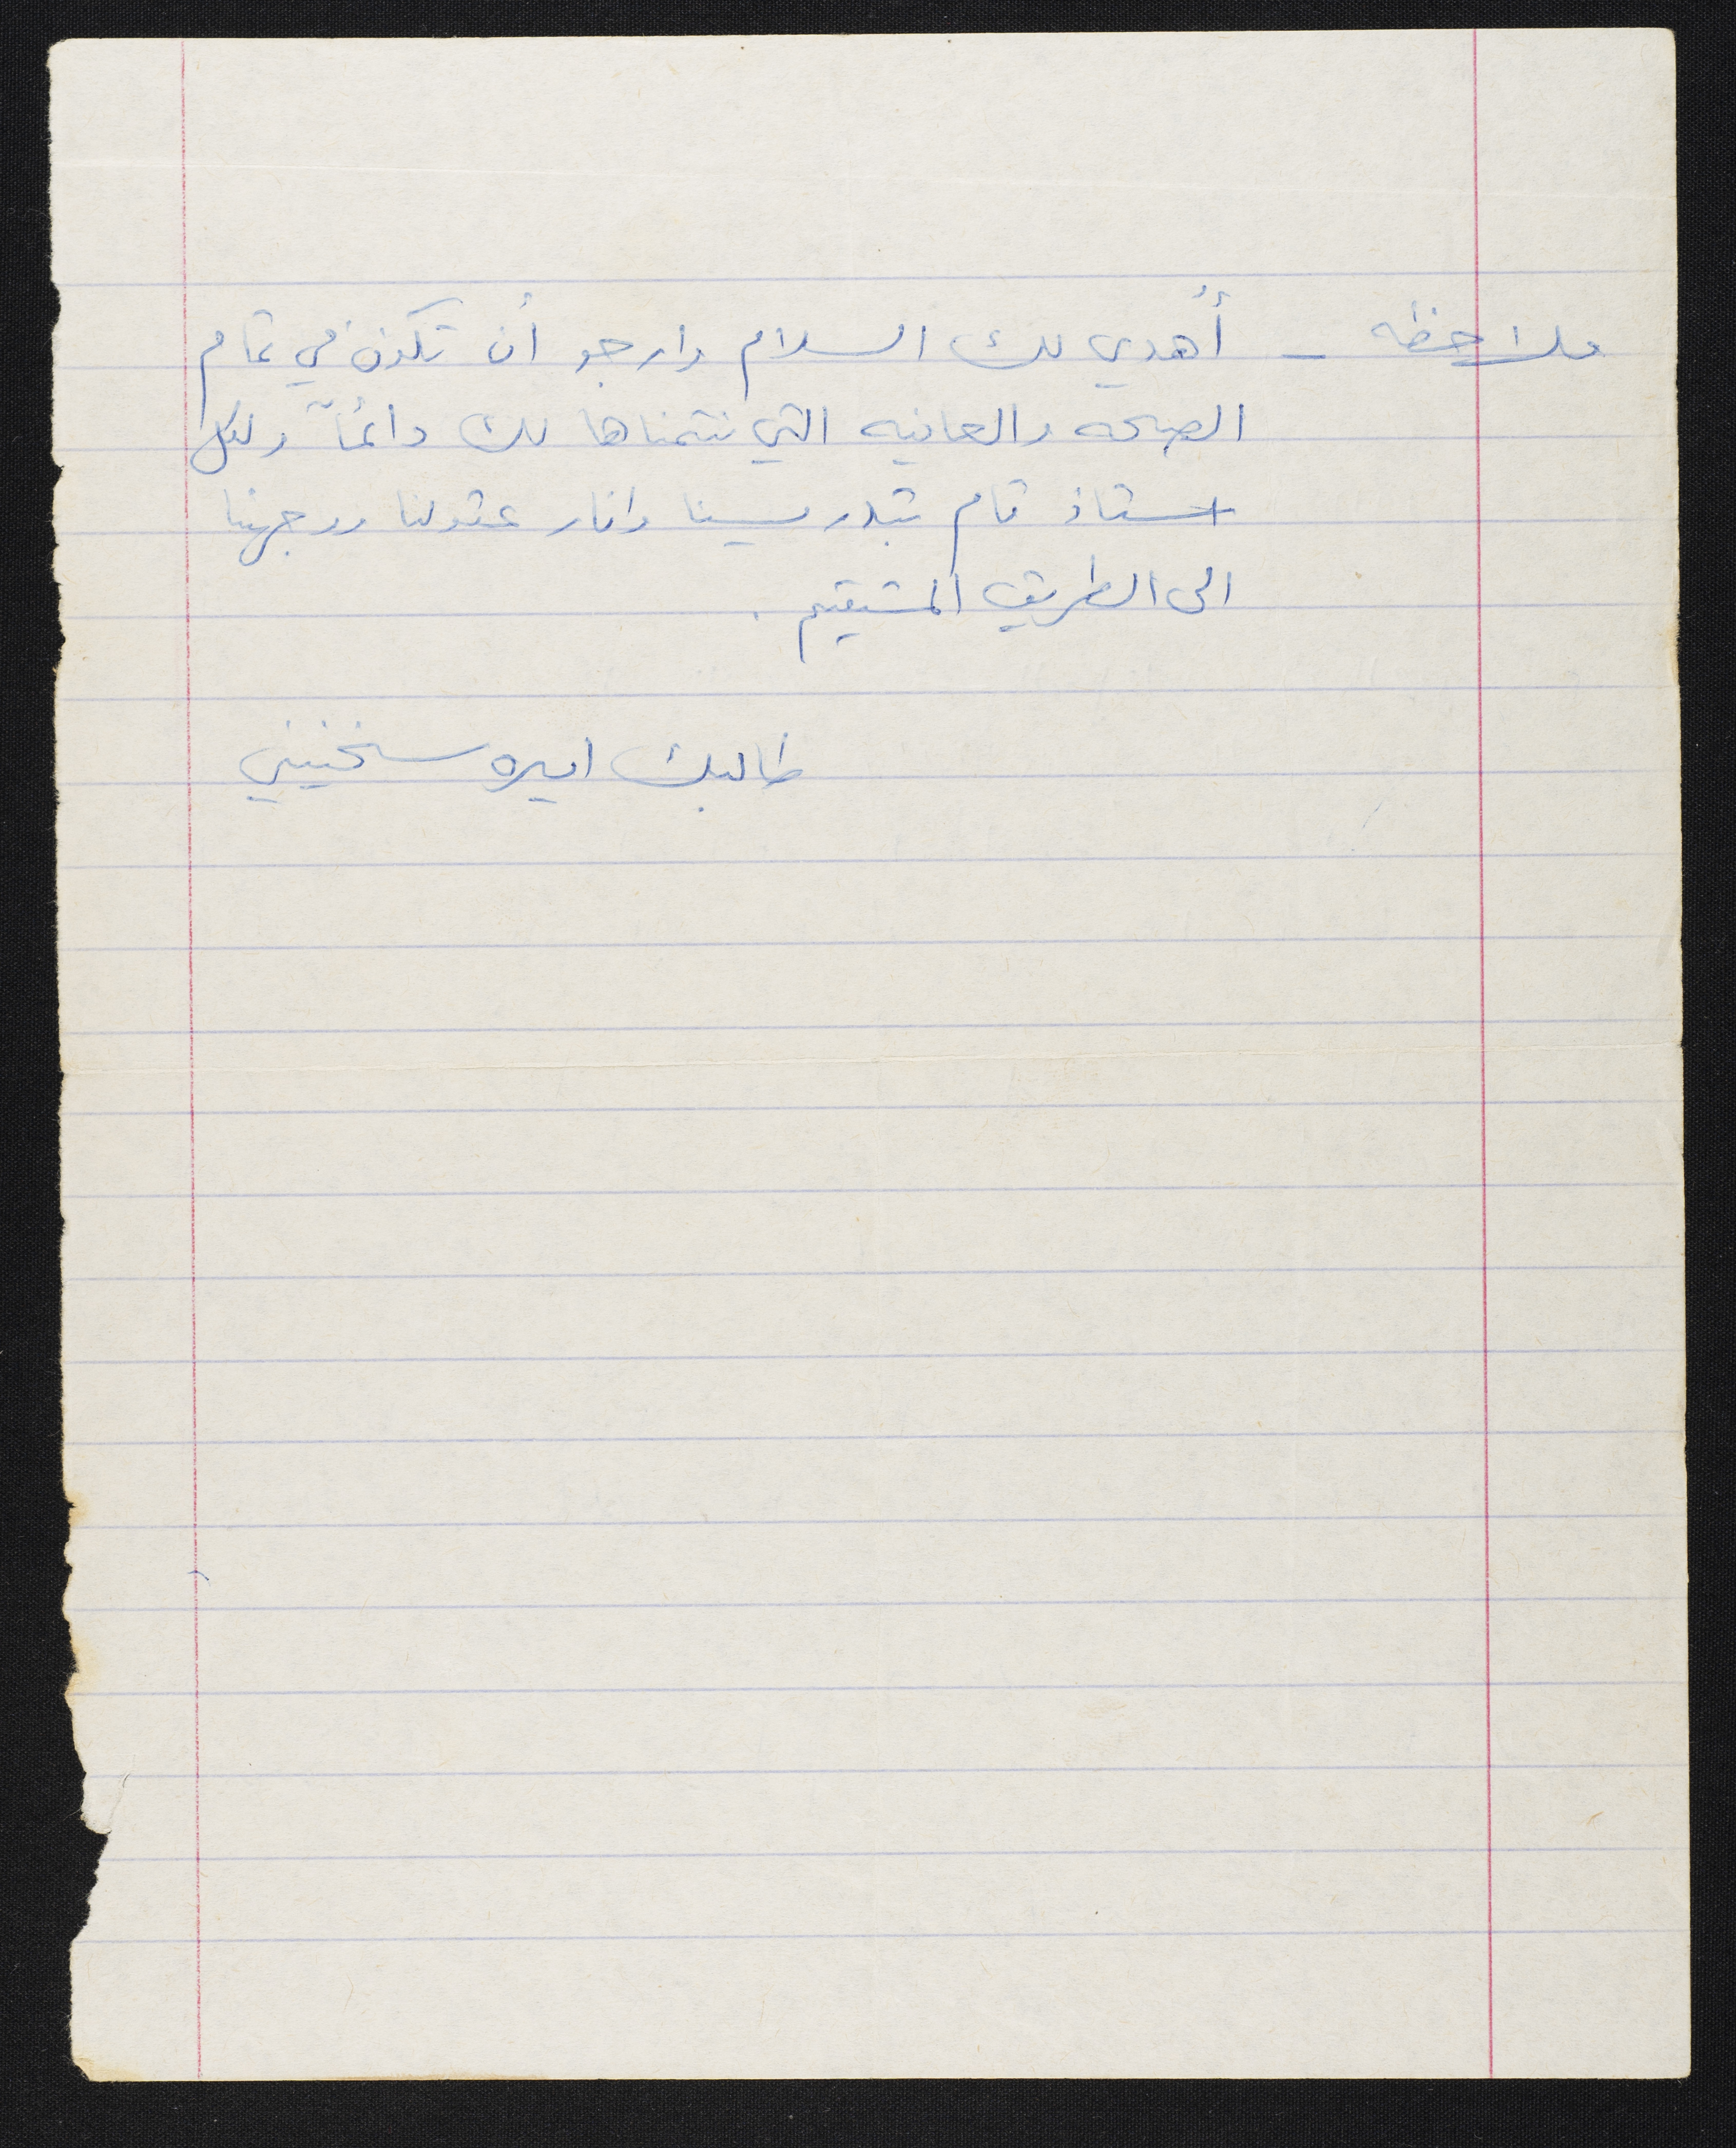 ملاحظه - أهدي لك السلام وارجو أن تكون في تمام
الصحه والعافيه التي نتمناها لك دائماً ولكل
استاذ قام بتدريسنا وانار عقولنا ووجهنا
الى الطريق المستقيم .
طالبك اميره سخنيني